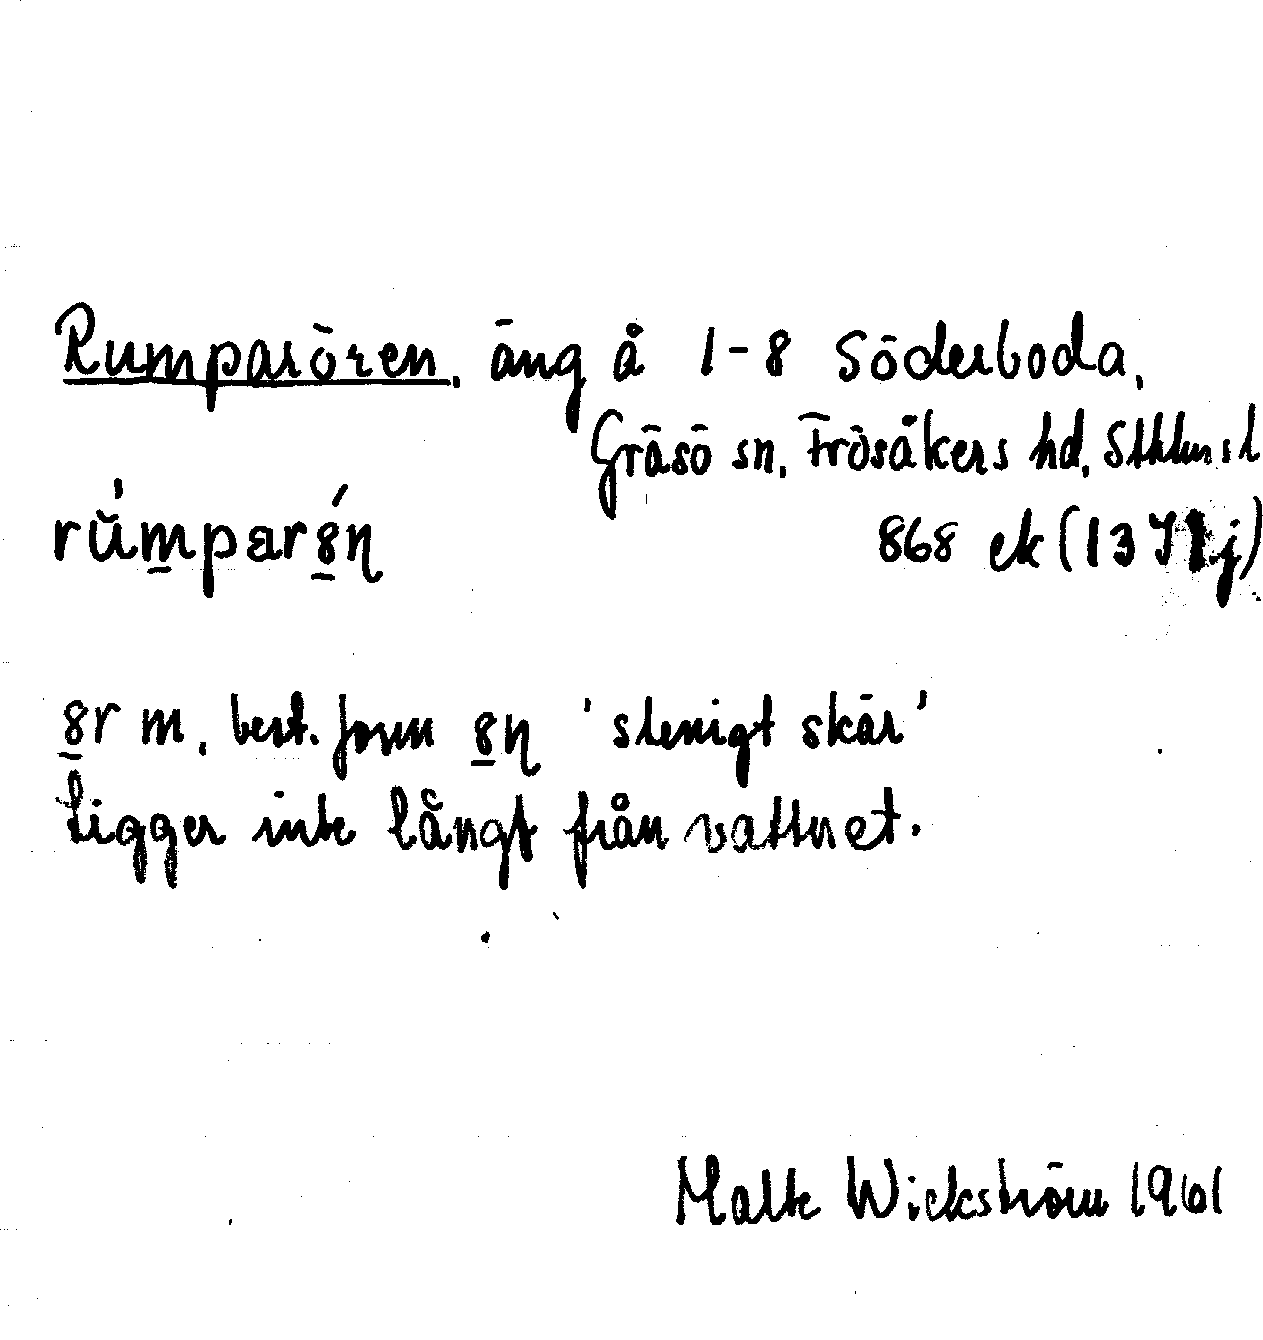 Rumparören, äng å 1-8 Söderboda,
Gräsö sn, Frösåkers hd, Sthlms l
868 ek (13 I j)
ör m, best. form 'stenigt skär'
Ligger inte långt från vattnet.
Malte Wickström 1961